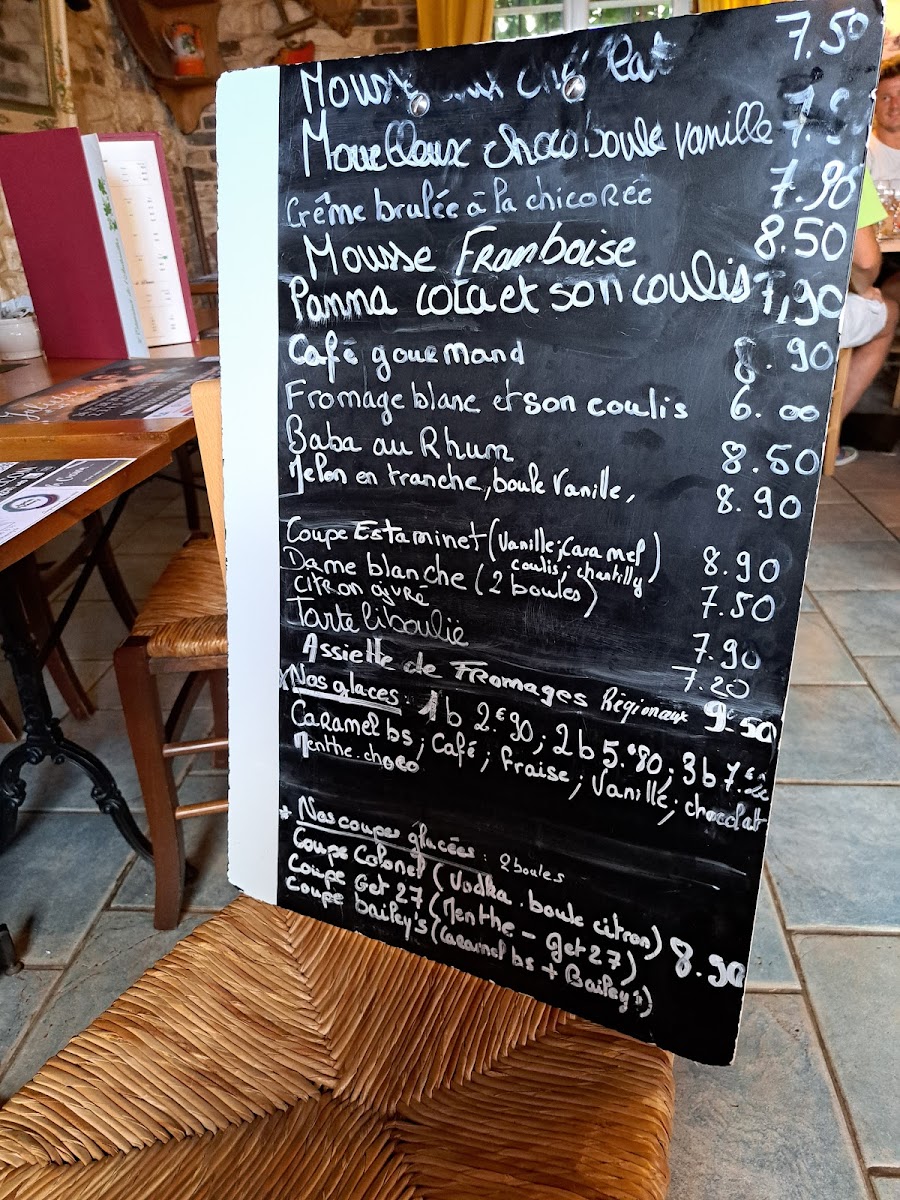 Mousse aux cho lat 7.50
Moelleux choco boule vanille 7.50
Crême brulée à la chicorée 7.90
Mousse Framboise 8.50
Panna cota et son coulis 7,90
Café gourmand 8.90
Fromage blanc et son coulis 6.00
Baba au Rhum 8.50
Melon en tranche, boule Vanille, 8.90
Coupe Estaminet (Vanille; Caramel) 8.90
coulis; chantilly
Dame blanche (2 boules) 7.50
Citron givré 7.90
Tarte liboulie 7.20
Assiette de Fromages Régionaux 9€50
Nos glaces: 1b 2€90; 2b 5€80; 3b
Caramel bs; Café; Fraise; Vanille; chocolat
Menthe.choco
* Nos coupes glacées: 2 boules
Coupe Colonel (Vodka. boule citron)
Coupe Get 27 (Menthe - get 27) 8.90
Coupe bailey's (Caramel bs + Bailey's)